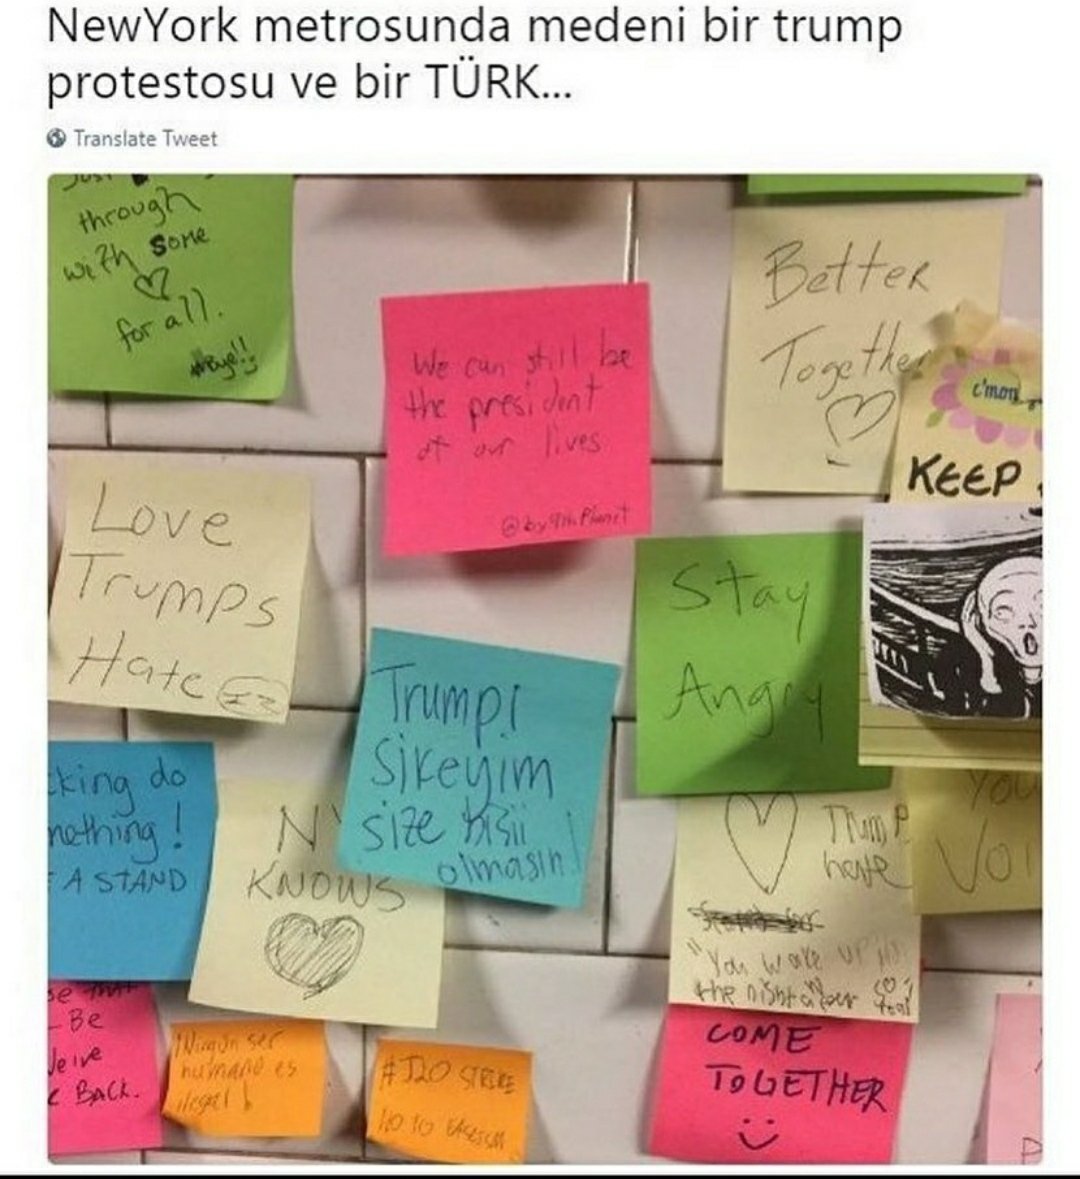 NewYork metrosunda medeni bir trump
protestosu ve bir TÜRK...
Translate Tweet
through
with some
for all.
We can still be
the president
of our lives
@by9thPlanet
Better
Together
c'mon
KEEP
Love
Trumps
Hate
Stay
Angry
Trump!
sikeyim
size bişii
olmasın!
king do
nothing!
A STAND
NY
KNOWS
Trump
hate
"You wake up
the night
You
Be
Back.
Ningun ser
humano es
ilegal!
NO TO FACISM
COME
TOGETHER